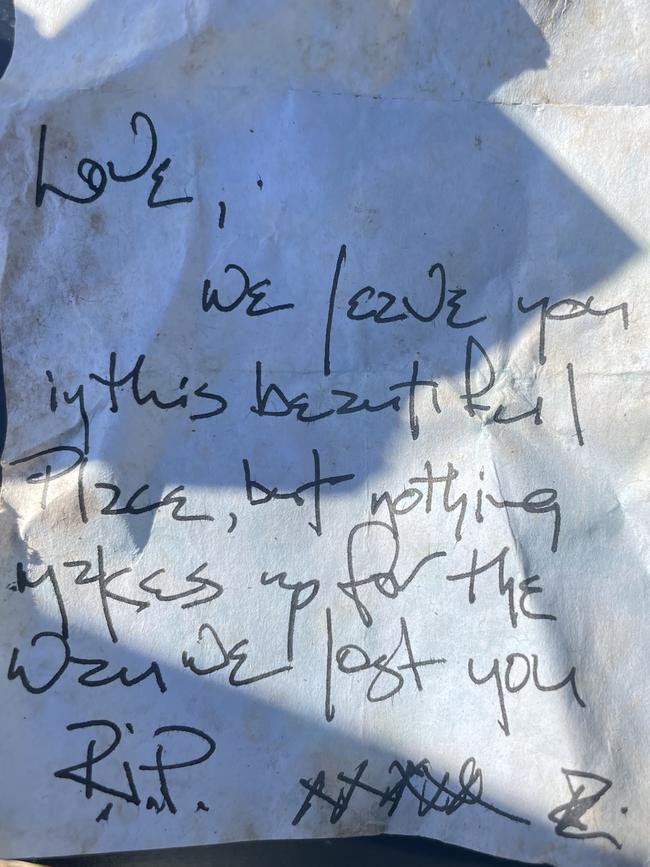 Love,
we leave you
in this beautiful
Place, but nothing
makes up for the
way we lost you
R.i.P. xxxxx